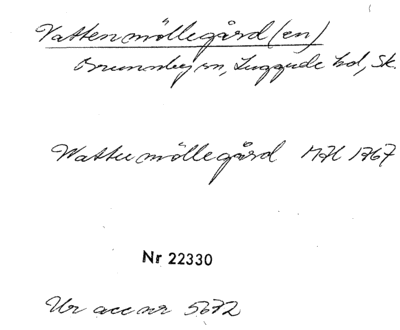 Vattenmöllegård(en)
Brunnby sn, Luggude hd, Sk.
Wattumöllegård MH 1767
Nr 22330
Ur acc nr 5672